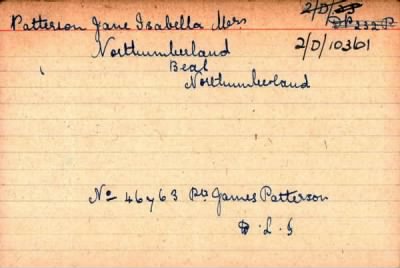 2/D/23
Patterson Jane Isabella Mrs
2/D/103601
Northumberland
Beal
Northumberland
No 46763 Pte James Patterson
D.L.I